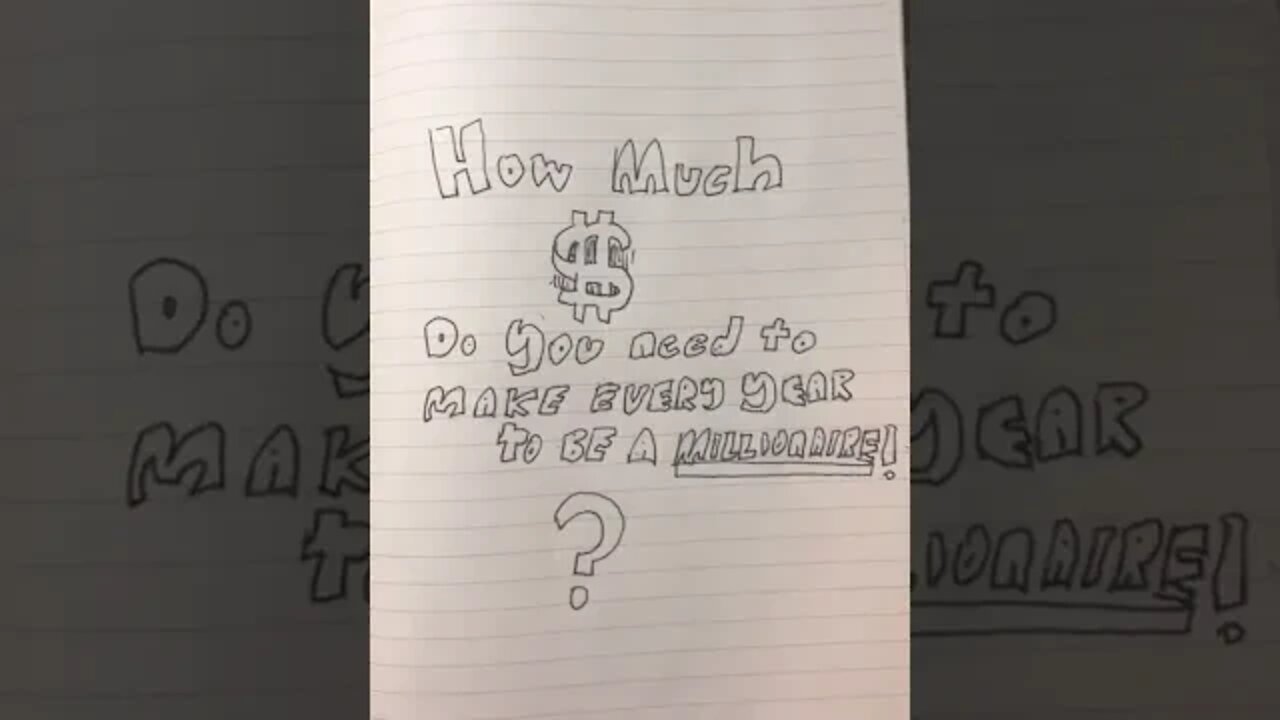 How Much
$
Do you need to
MAKE EVERY YEAR
to BE A MILLIONAIRE!
?